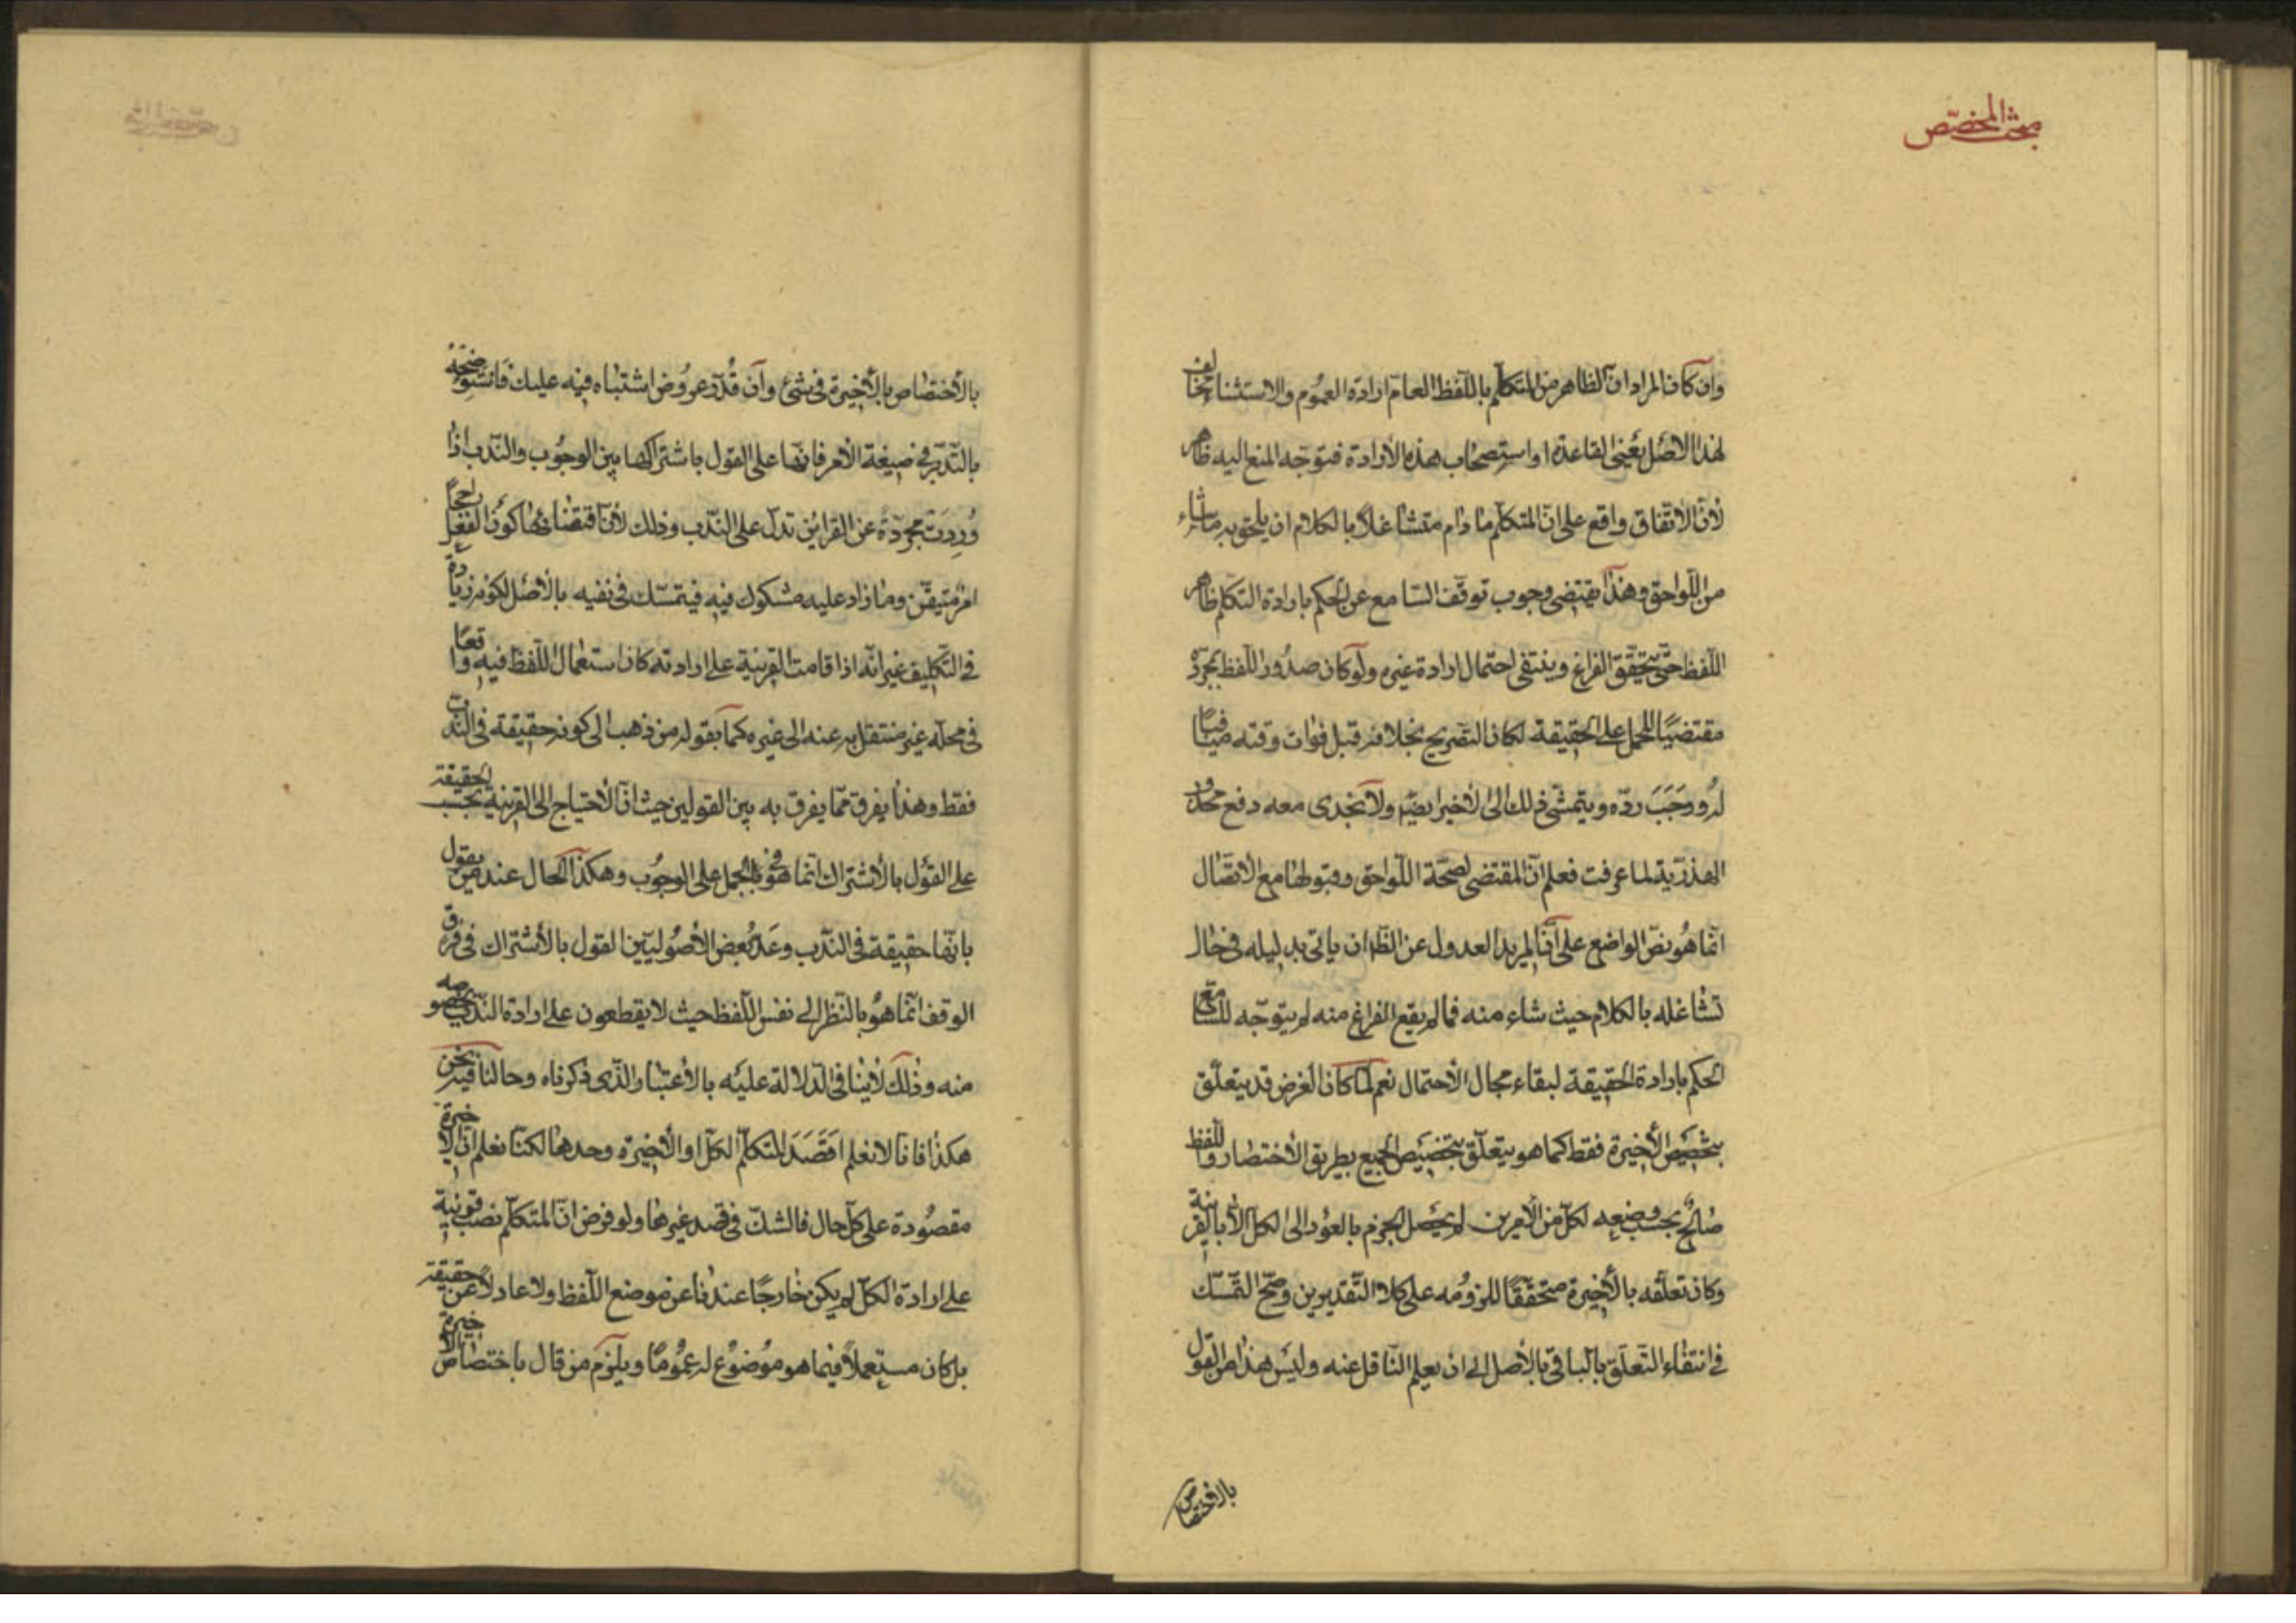 مبحث المخصّص
وان كان المراد انّ الظاهر من المتكلّم باللّفظ العامّ ارادة العموم والاستثناء مخالف
لهذا الاصل يعنى القاعدة او استصحاب هذه الارادة فتوجّه المنع اليه ظاهر
لأنّ الاتّفاق واقع على انّ المتكلّم ما دام متشاغلاً بالكلام ان يلحق به ما شاء
من اللّواحق وهذا يقتضى وجوب توقّف السّامع عن الحكم بارادة المتكلم ظاهر
اللّفظ حتّى يتحقّق الفراغ وينتفى احتمال ارادة غيره ولو كان صدور اللّفظ بمجرّده
مقتضيًا للحمل على الحقيقة لكان التّصريح بخلافه قبل فوات وقته منافيًا
له ووجب ردّه ويتمشّى ذلك الى الاخير ايضًا ولا يجدى معه دفع محذور
الهذريّة لما عرفت فعلم انّ المقتضى لصحّة اللّواحق وقبولها مع الاتّصال
انّما هو نصّ الواضع على انّ لمريد العدول عن الظّ ان ياتى بدليله فى حال
تشاغله بالكلام حيث شاء منه فما لم يقع الفراغ منه لم يتوجّه للسّامع
الحكم بارادة الحقيقة لبقاء مجال الاحتمال نعم لمّا كان الغرض قد يتعلّق
بتخصيص الأخيرة فقط كما هو يتعلّق بتخصيص الجميع بطريق الاختصار واللّفظ
صالح بحسب وضعه لكلّ من الأمرين لم يحصل الجزم بالعود الى الكلّ الاّ بالقرينة
وكان تعلّقه بالأخيرة متحقّقًا للزومه على كلا التّقديرين وصحّ التمسّك
فى انتفاء التّعلّق بالباقى بالأصل الى ان يعلم النّاقل عنه وليس هذا من القول
بالاختصاص
بالأختصاص بالأخيرة فى شئ وان قدّر عروض اشتباه فيه عليك فاستوضحه
بالتّدبّر فى صيغة الأمر فانّها على القول باشتراكها بين الوجوب والنّدب اذا
وردت مجرّدة عن القراين تدلّ على النّدب وذلك لأنّ اقتضائها كون الفعل راجحًا
امر متيقّن وما زاد عليه مشكوك فيه فيتمسّك فى نفيه بالأصل لكونه زيادة
فى التّكليف غير انّه اذا قامت القرينة على ارادته كان استعمال اللّفظ فيه واقعًا
فى محلّه غير منتقل به عنه الى غيره كما يقوله من ذهب الى كونه حقيقة فى النّدب
فقط وهذا يفرق ممّا يفرق به بين القولين حيث انّ الأحتياج الى القرينة بحسب الحقيقة
على القول بالأشتراك انّما هو فى الحمل على الوجوب وهكذا الحال عند من يقول
بانّها حقيقة فى النّدب وعدّ بعض الأصوليّين القول بالأشتراك فى فرق
الوقف انّما هو بالنّظر الى نفس اللّفظ حيث لا يقطعون على ارادة النّدب بخصوصه
منه وذلك لا ينافى الدّلالة عليه بالأعتبار الّذى ذكرناه وحالنا فيما نحن فيه
هكذا فانّا لا نعلم اقصد المتكلّم الكلّ او الأخيرة وحدها لكنّا نعلم انّ الأخيرة
مقصودة على كلّ حال فالشكّ فى قصد غيرها ولو فرض انّ المتكلّم نصب قرينة
على ارادة الكلّ لم يكن خارجًا عندنا عن موضع اللّفظ ولا عادلاً عن حقيقته
بل كان مستعملاً فيما هو موضوع له عمومًا ويلزم من قال باختصاص الأخيرة